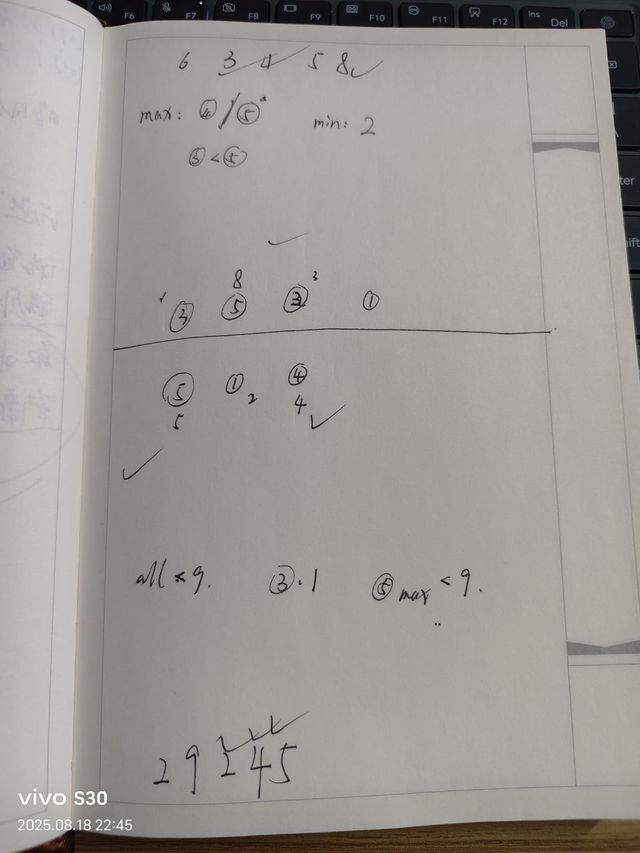 F6 F7 F8 F9 F10 F11 F12 Ins Del
6 3 4 5 8
max: ④/⑤ min: 2
③<⑤
8
③ ⑤ ③ ①
⑤ ① ④
5 2 4
all < 9. ③·1 ⑤max < 9.
2 9 2 4 5
vivo S30
2025.08.18 22:45